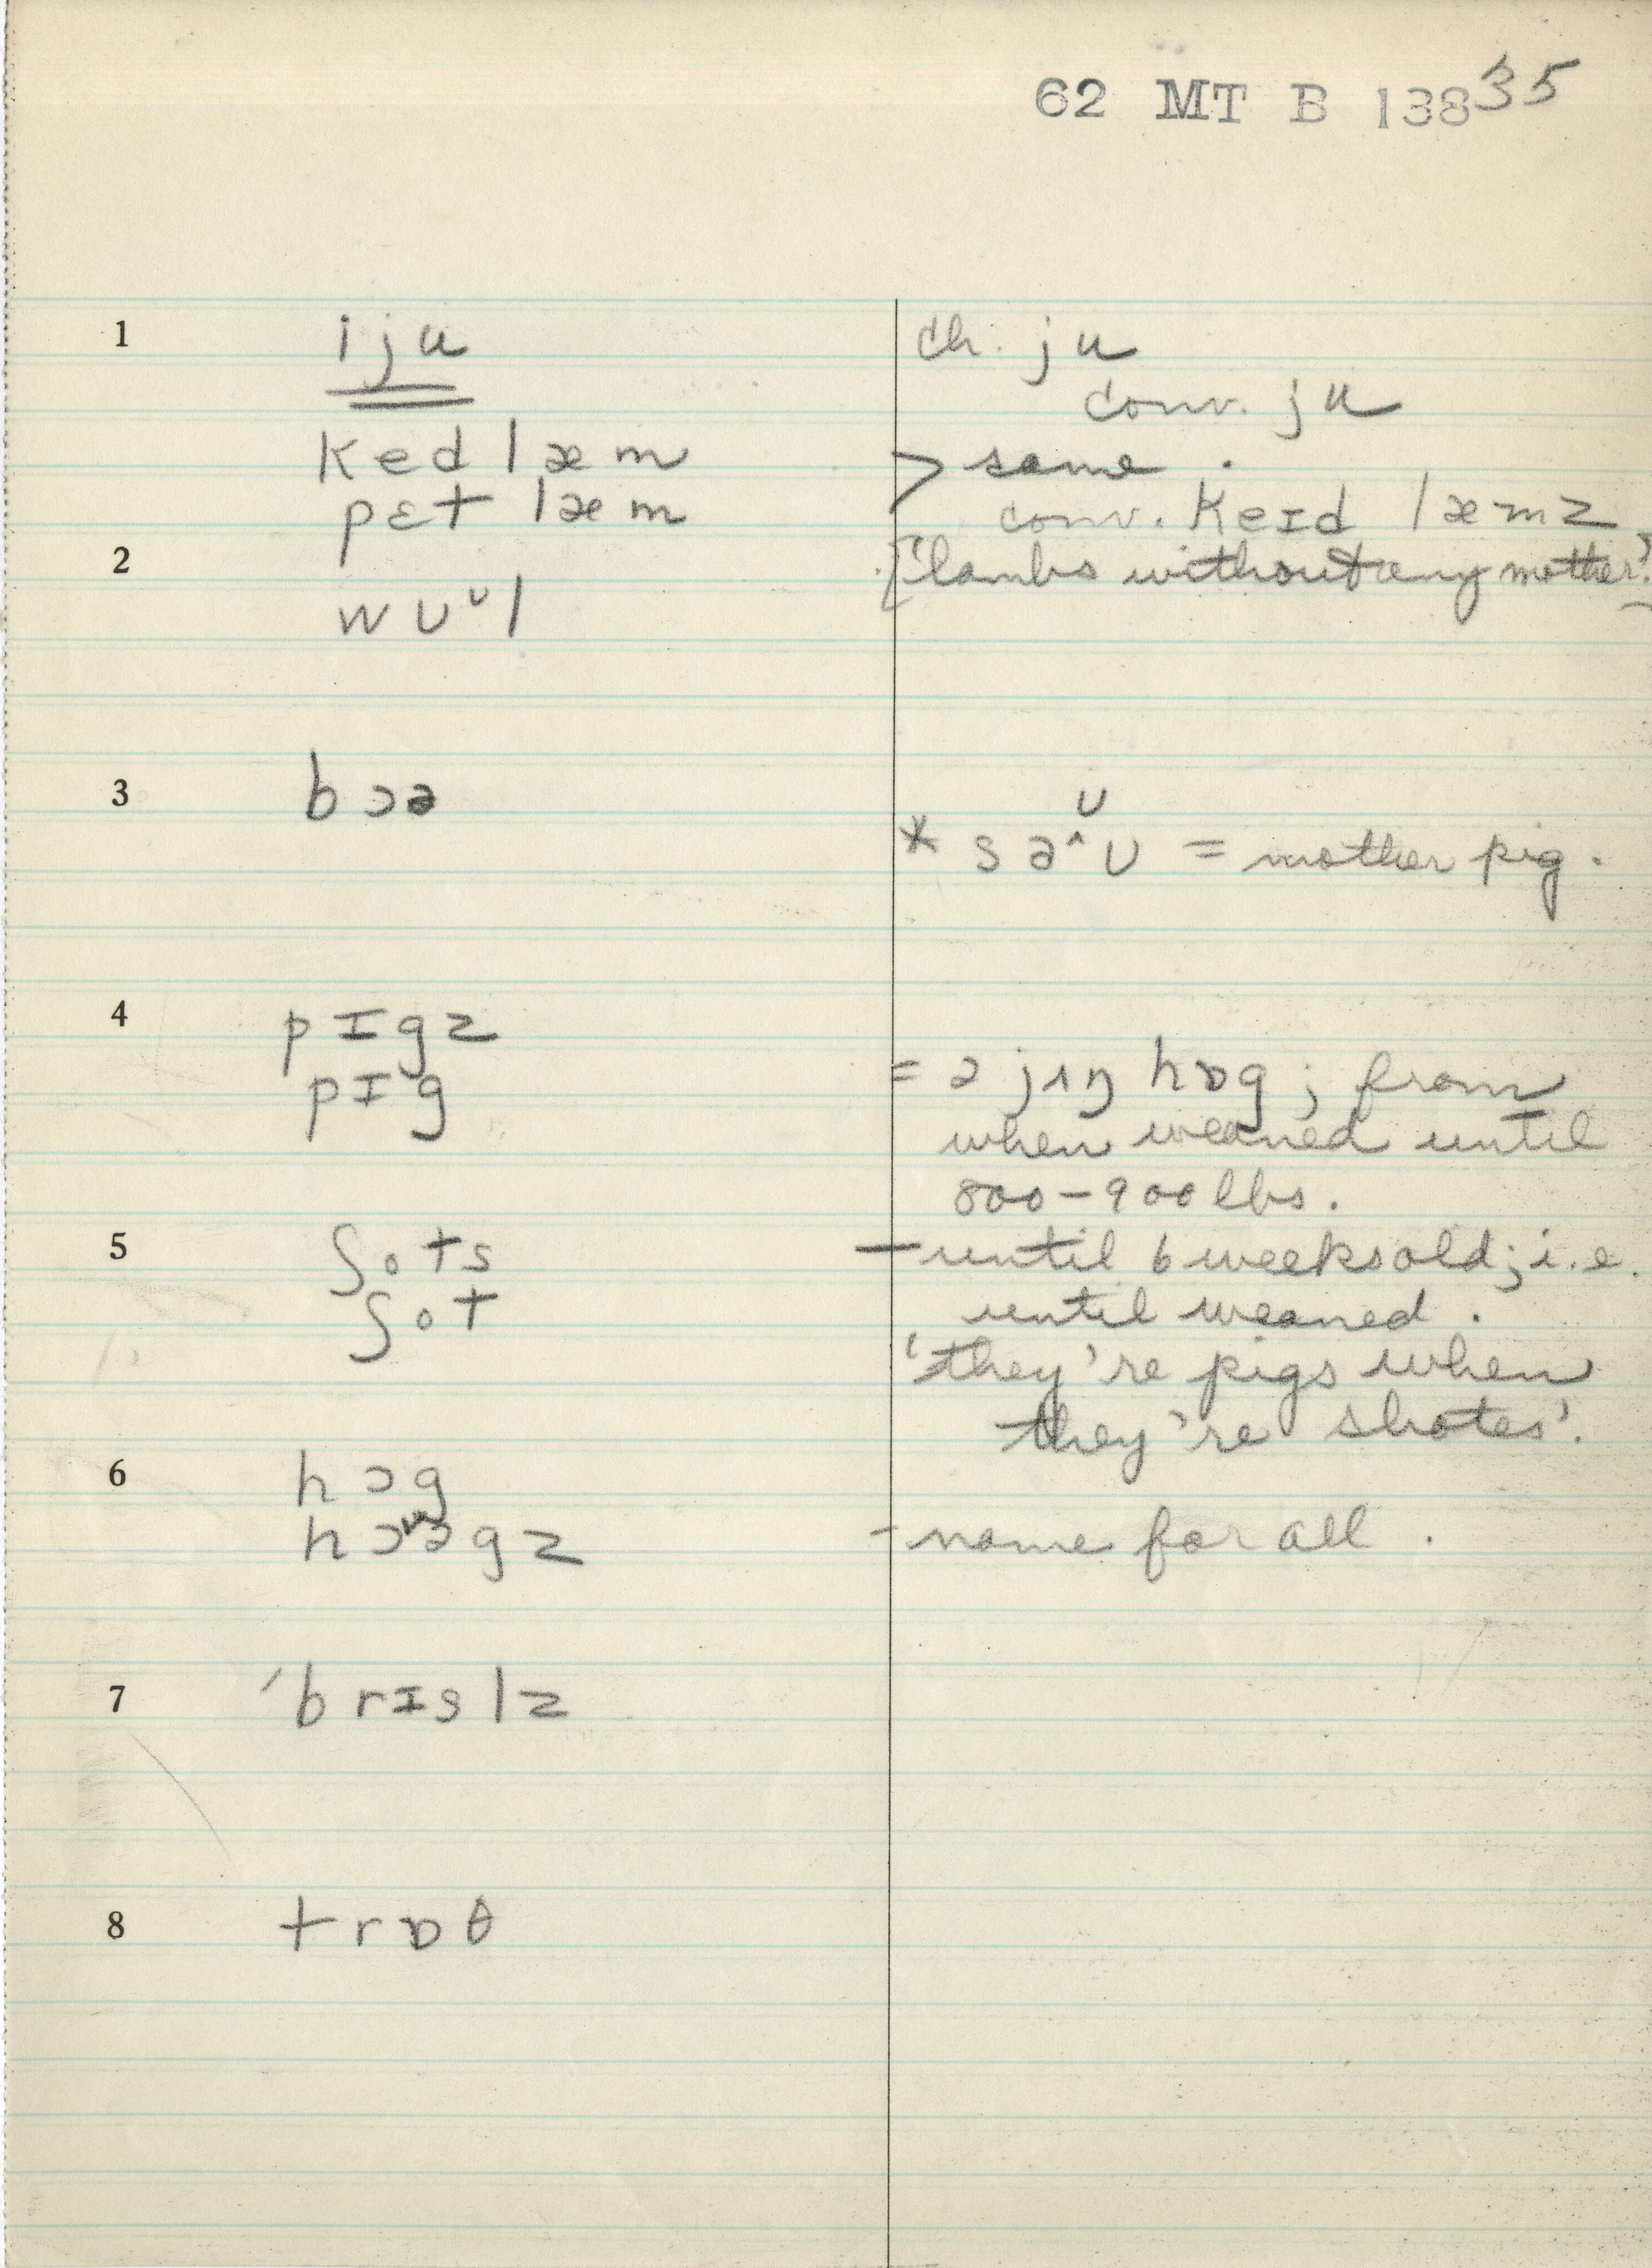 62 MT B 138 35
1 iju ch. ju
conv. ju
ked læm > same.
pɛt læm conv. keɪd læmz
2 ['lambs without any mother'.]
wʊᶸl
3 bɔə
ʊ
* sə^ʊ = mother pig.
4 pɪgz
pɪg = ə jʌŋ hɒg; from
when weaned until
800–900 lbs.
5 ʃots – until 6 weeks old; i.e.
ʃot until weaned.
'they're pigs when
they're shotes'.
6 hɔg
hɔəgz - name for all.
7 ˈbrɪslz
8 trɒθ